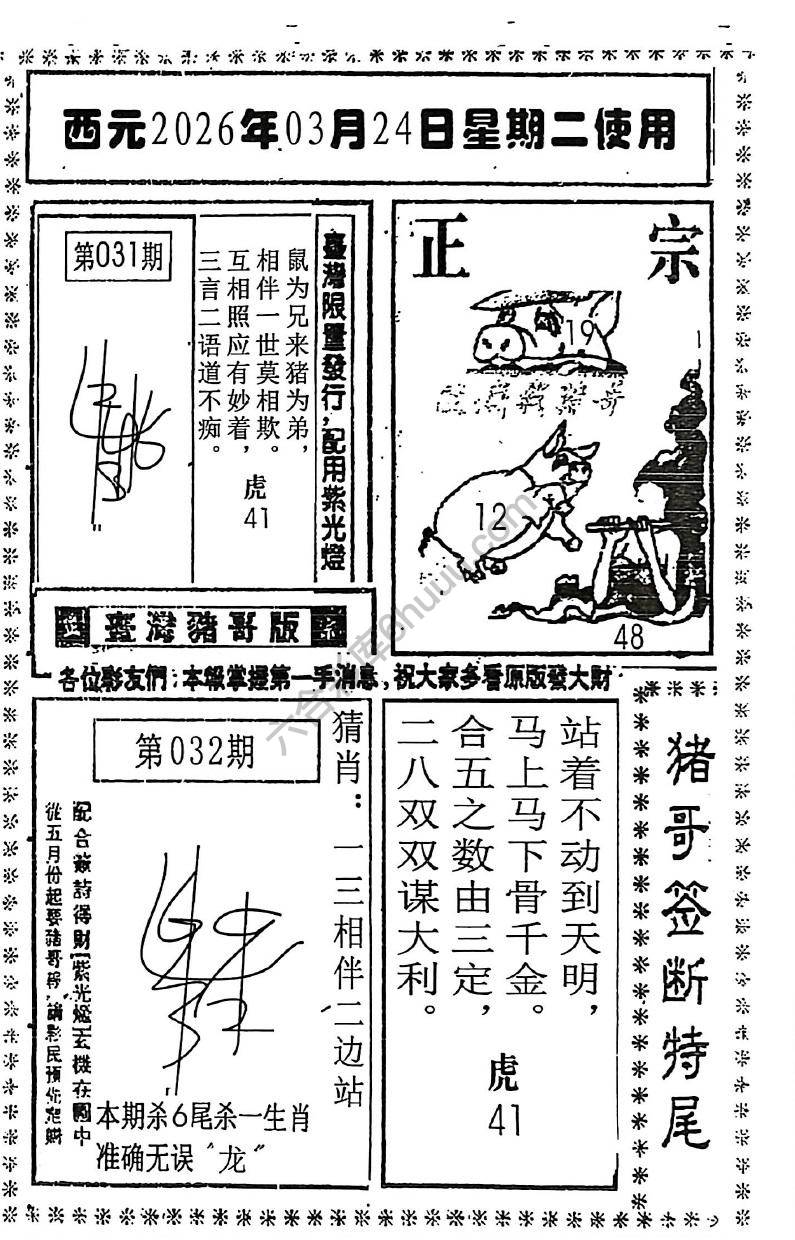 西元2026年03月24日星期二使用
第031期
鼠为兄来猪为弟，
相伴一世莫相欺。
互相照应有妙着，
三言二语道不痴。
虎
41
臺灣限量發行，配用紫光燈
正宗
19
12
48
臺灣豬哥版
各位彩友們：本報掌握第一手消息，祝大家多看原版發大財
第032期
猜肖：一三相伴二边站
配合簽詩得財紫光燈玄機在圖中
本期杀6尾杀一生肖
准确无误“龙”
站着不动到天明，
马上马下骨千金。
合五之数由三定，
二八双双谋大利。
虎
41
猪哥签断特尾
六合彩库6huuu.com